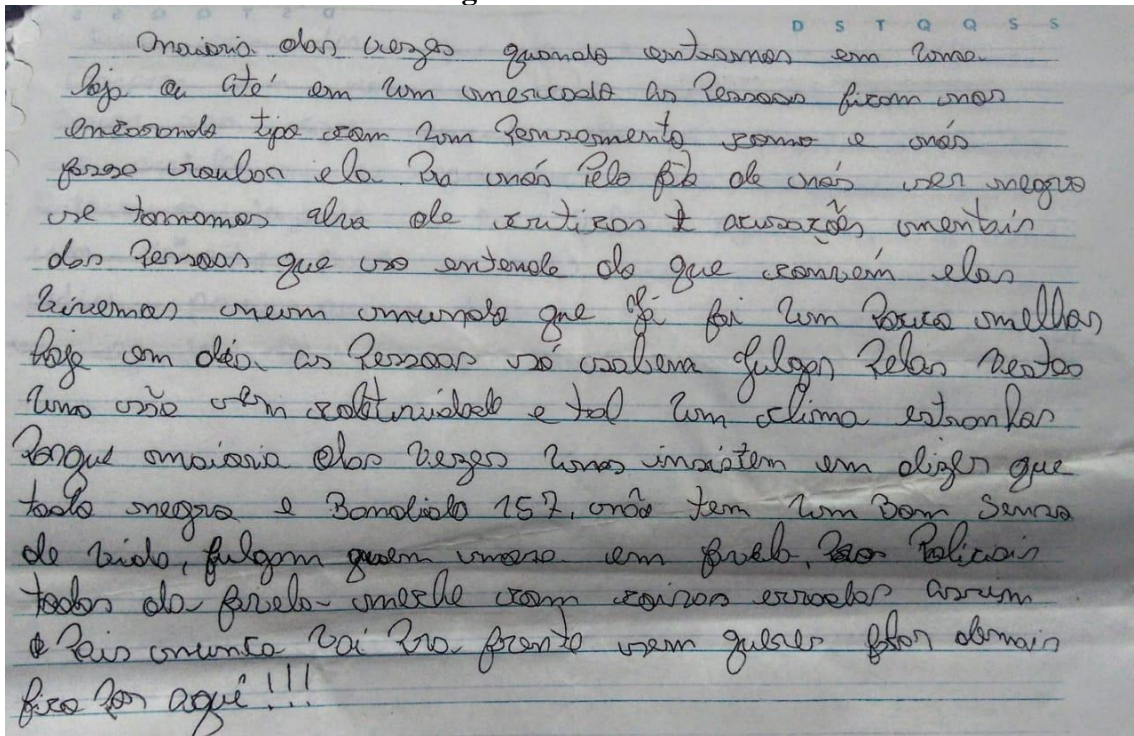 D S T Q Q S S
maioria das vezes quando entramos em uma
loja ou até em um mercado as Pessoas ficam nos
encarando tipo com um Pensamento como e nós
fosse roubar ela Pra nós Pelo fato de nós ser negro
se tornamos alvo de criticas e acusações mentais
das Pessoas que so entende do que convém elas
Vivemos num mundo que já foi um Pouco melhor
hoje em dia as Pessoas só sabem julgar Pelas
uns são sem e tal um clima estranho
Porque maioria das Vezes uns insistem em dizer que
todo negro e Bandido 157, não tem um Bom Senso
de vida, julgam quem mora em favela, Policiais
todos da favela mexe com coisas erradas assim
o Pais nunca Vai Pra frente sem querer falar demais
fico Por aqui!!!